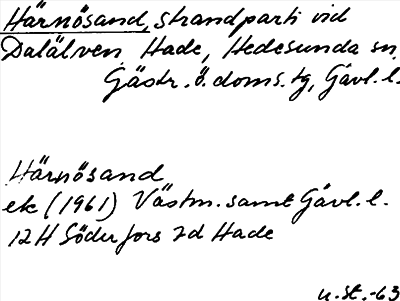 Härnösand, strandparti vid
Dalälven Hade, Hedesunda sn,
Gästr. ö. doms. tg, Gävl. l.
Härnösand
ek (1961) Västm. samt Gävl. l.
12H Söderfors 7d Hade
u. st. -63